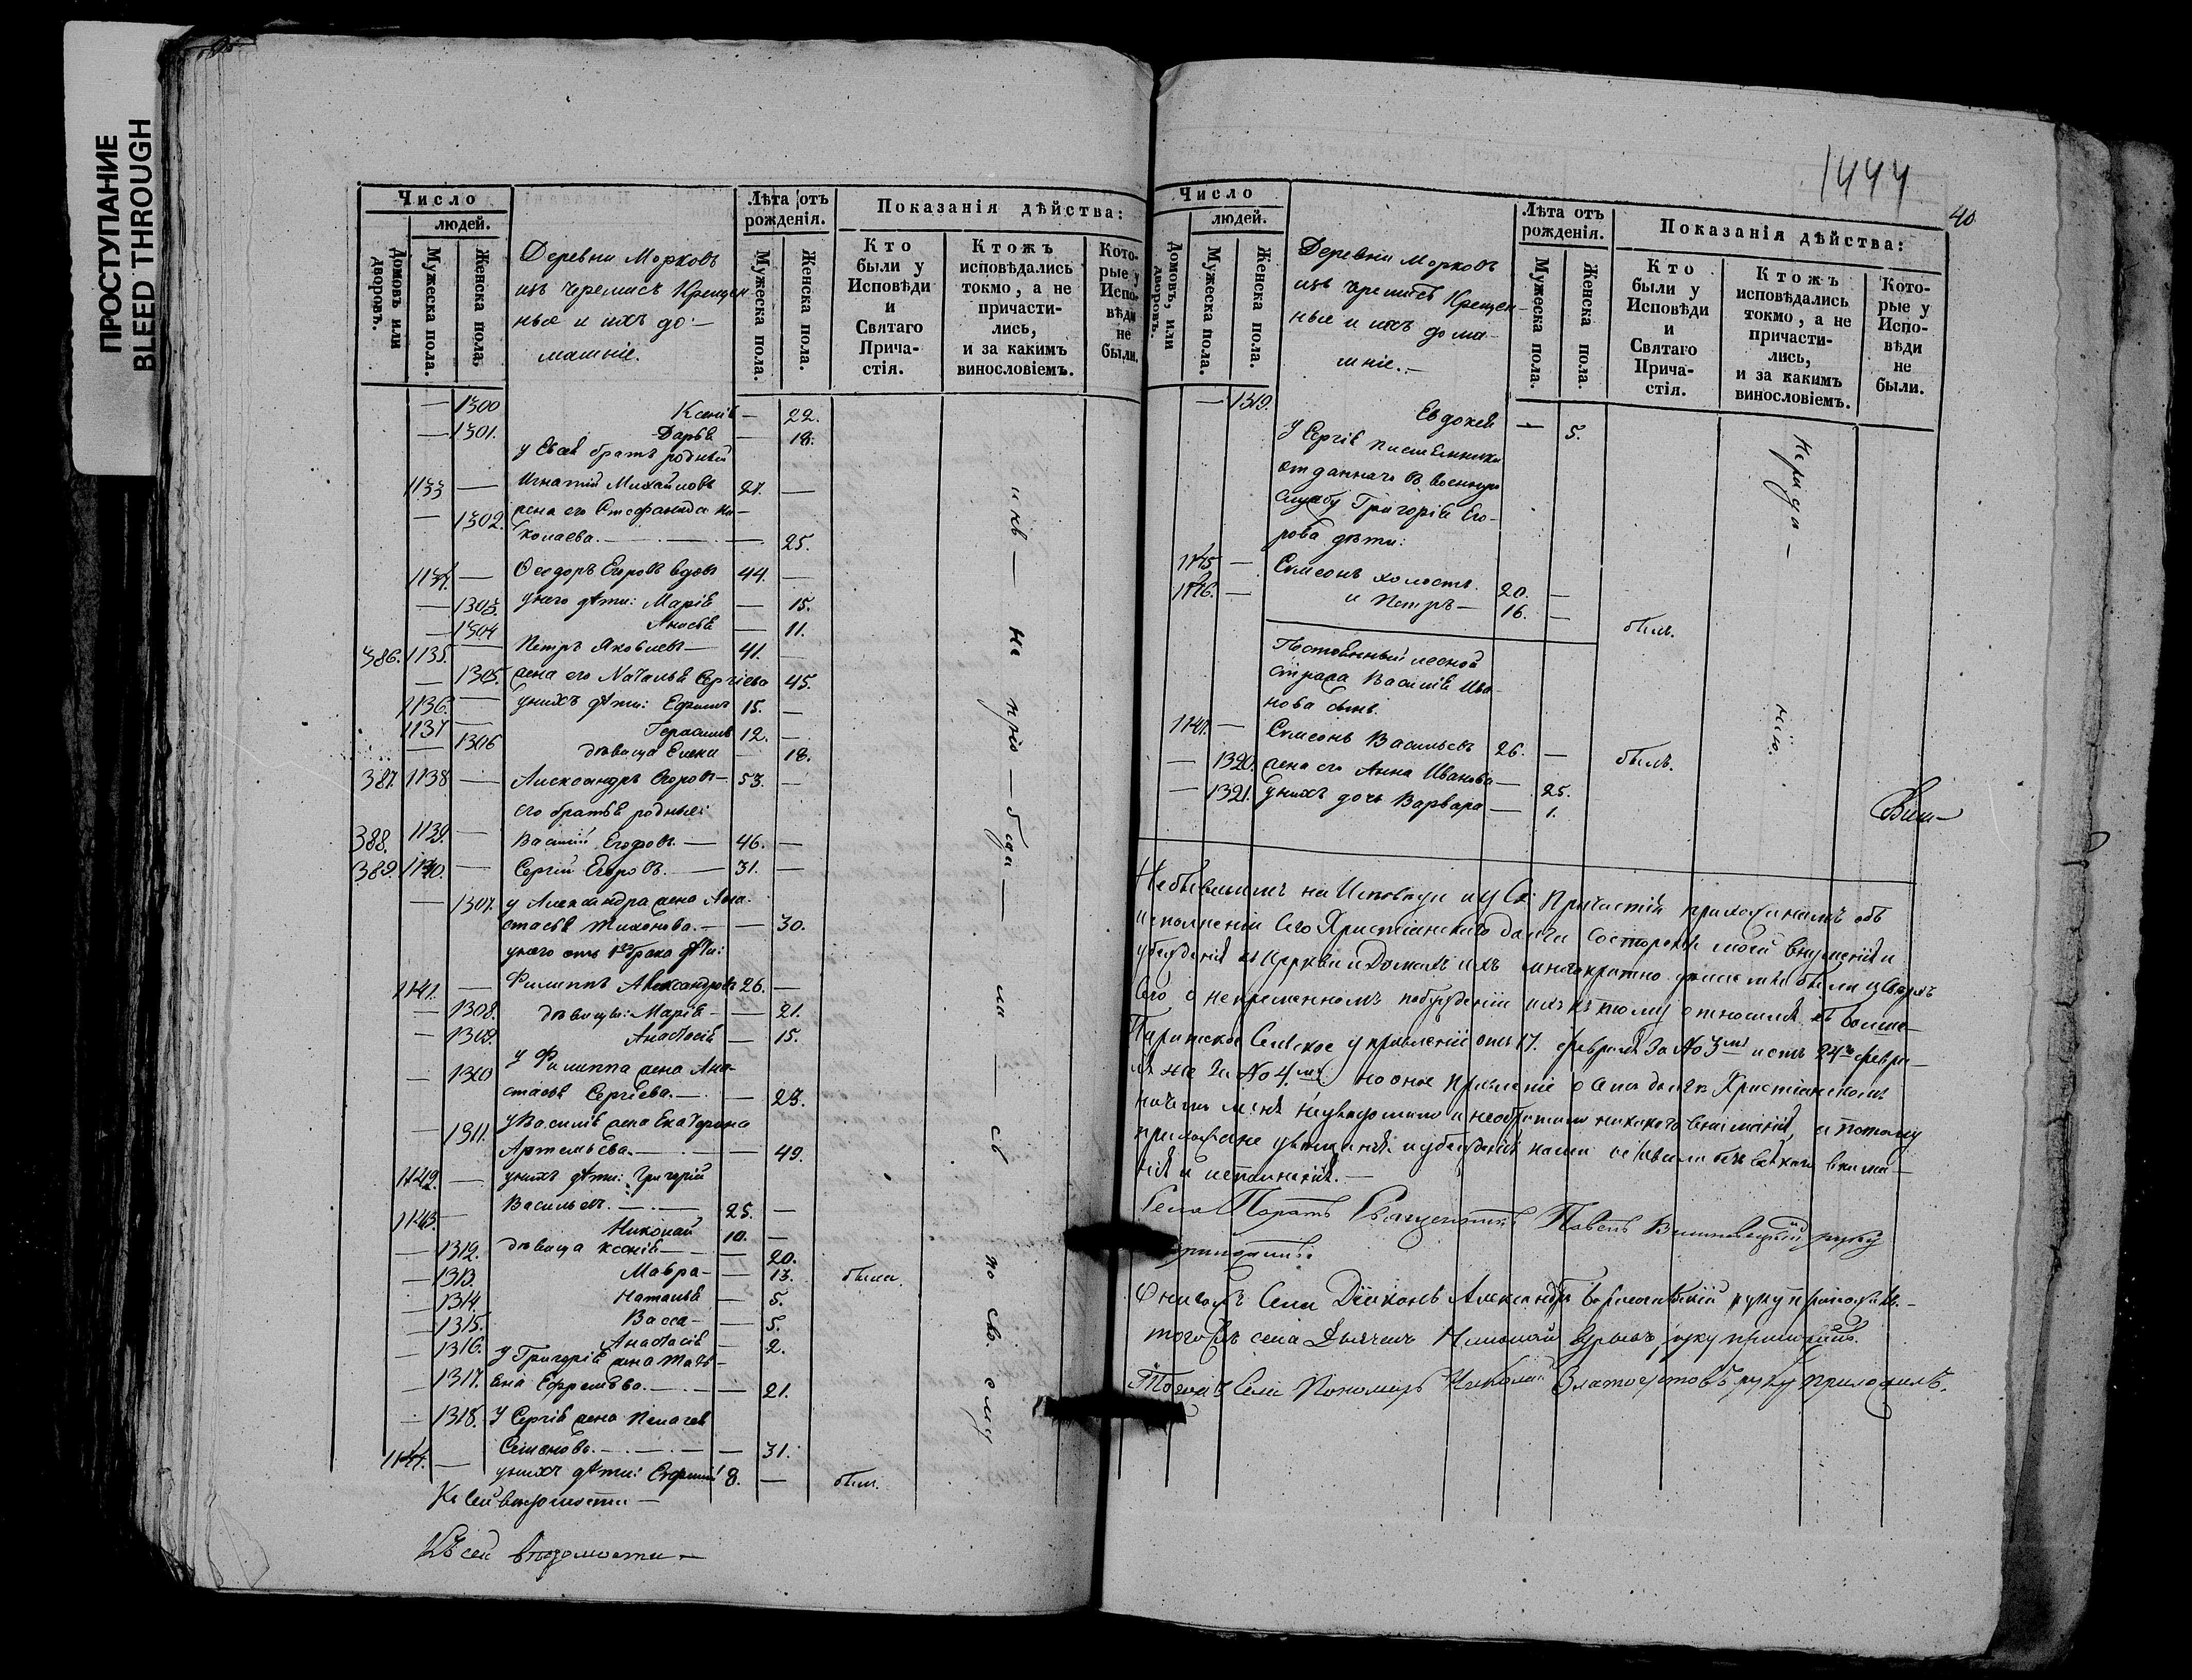 ПРОСТУПАНИЕ
BLEED THROUGH
Число
людей.
Домовъ или дворовъ.
Мужеска пола.
Женска пола.
Деревни Морковъ
изъ черемисъ Крещен-
ные и ихъ до-
машніе.
Лѣта отъ рожденія.
Мужеска пола.
Женска пола.
Показанія дѣйства:
Кто были у Исповѣди и Святаго Прича-стія.
Ктожъ исповѣдались токмо, а не причасти-лись, и за какимъ винословіемъ.
Кото-рые у Испо-вѣди не были.
— 1300 Ксенія — 22.
— 1301. Дарья — 18.
у Евсея братъ родный
1133 — Игнатій Михайловъ 27. —
— 1302. жена его Стефанида Ни-
колаева. — 25.
1134. — Ѳеодоръ Егоровъ вдовъ 44. —
— 1303. у него дѣти: Марія — 15.
— 1304 Анисья — 11.
386. 1135. — Петръ Яковлевъ — 41. —
— 1305. жена его Наталья Сергіева 45.
1136. — у нихъ дѣти: Ефимъ 15. —
1137 — Герасимъ 12. —
— 1306 дѣвица Елена — 18.
387. 1138 — Александръ Егоровъ — 53. —
его братья родные:
388. 1139. — Василій Егоровъ. — 46. —
389. 1140. — Сергій Егоровъ. — 31. —
— 1307. у Александра жена Ана-
стасья Тихонова. — 30.
у него отъ 1го брака дѣти:
1141. — Филиппъ Александровъ 26. —
— 1308. дѣвицы: Марія — 21.
— 1309. Анастасія — 15.
— 1310 у Филиппа жена Ана-
стасья Сергіева. — 23.
— 1311. у Василія жена Екатерина
Артемьева. — 49.
1142. — у нихъ дѣти: Григорій
Васильевъ. — 25. —
1143. — Николай 10. —
— 1312. дѣвица Ксенія — 20.
— 1313. Мавра — 13. были.
— 1314. Наталья — 5.
— 1315. Васса — 5.
— 1316. Анастасія — 2.
— 1317. у Григорія жена Тать-
яна Ефремова. — 21.
— 1318. у Сергія жена Пелагея
Семенова. — 31.
1144. — у нихъ дѣти: 8. — был.
не — при — бы — ли — по сво ему
Къ сей вѣдомости —
Къ сей вѣдомости —
1444
40
Число
людей.
Домовъ, или дворовъ.
Мужеска пола.
Женска пола.
Деревни Морковъ
изъ черемисъ Крещен-
ные и ихъ дома-
шніе.
Лѣта отъ рожденія.
Мужеска пола.
Женска пола.
Показанія дѣйства:
Кто были у Исповѣди и Святаго Прича-стія.
Ктожъ исповѣдались токмо, а не причасти-лись, и за какимъ винословіемъ.
Кото-рые у Испо-вѣди не были.
— 1319. Евдокея — 5.
У Сергія племянника
отданнаго въ военную
службу Григорія Его-
рова дѣти:
1145 — Симеонъ холостъ. 20. —
1146. — и Петръ — 16. — былъ.
нерадѣ —
нію.
лесной
стражи Василія Ива-
нова сынъ
1147. — Симеонъ Васильевъ 26. — былъ.
— 1320. жена его Анна Иванова — 25.
— 1321. у нихъ дочь Варвара — 1.
Небывшимъ на Исповѣди и у Св. Причастія прихожанамъ объ
исполненіи сего Христіанскаго долга со стороны моей внушенія и
убѣжденія въ церкви и домахъ ихъ многократно были и сверхъ
сего о непременномъ побужденіи ихъ къ тому относился въ
Паратское Сельское управленіе отъ 17. февраля за № 3мъ и отъ 24го февра-
ля же за № 4мъ но оное правленіе о семъ долгѣ Христіанскомъ
меня неуведомило и необратило никакого вниманія, а потому
прихожане увещанія и убежденія наши оставили безъ всякаго внима-
нія и исполненія. —
Села Паратъ Священникъ Павелъ Вишневецкій руку
приложилъ.
Оногожъ села Діаконъ Александръ руку приложилъ. —
тогожъ села Дьячекъ Николай руку приложилъ.
Тогожъ Села Пономарь Николай Златоустовъ руку приложилъ.